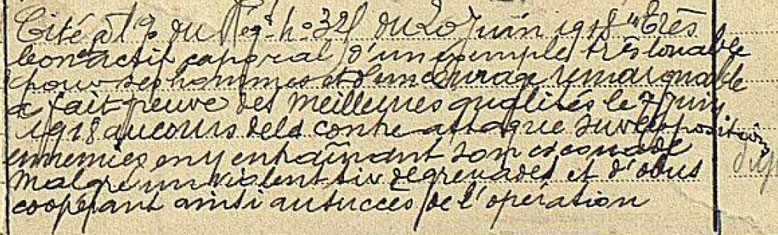 Cité à l'O du Reg. no 325 du 20 Juin 1918 "Très
bon et actif caporal d'un exemple très louable
pour ses hommes et d'un courage remarquable
a fait preuve des meilleures qualités le 7 Juin
1918 au cours de la contre attaque sur les position
ennemies en y entraînant son escouade
malgré un violent tir de grenades et d'obus
coopérant ainsi au succès de l'opération